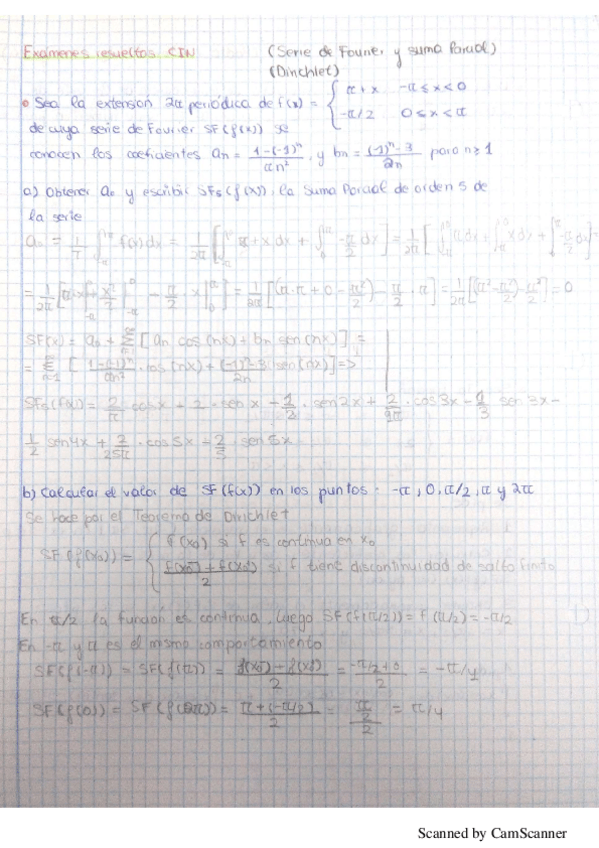 Exámenes resueltos CIN (Serie de Fourier y suma Parcial)
(Dirichlet)
• Sea la extension 2π periódica de f(x) = { π + x -π ≤ x < 0
-π/2 0 ≤ x < π
de cuya serie de Fourier SF(f(x)) se
conocen los coeficientes an = 1-(-1)^n / πn² , y bn = (-1)^n - 3 / 2n para n ≥ 1
a) Obtener a₀ y escribir SF₅(f(x)), la suma Parcial de orden 5 de
la serie
a₀ = 1/π ∫ f(x)dx = 1/2π [ ∫ π + x dx + ∫ -π/2 dx ] = 1/2π [ ∫ π dx + ∫ x dx + ∫ -π/2 dx ] =
= 1/2π [ π·x + x²/2 - π/2 · x ] = 1/2π [ (π·π + 0 - π²/2) - π/2 · π ] = 1/2π [ (π² - π²/2) - π²/2 ] = 0
SF(x) = a₀ + Σ [ an cos(nx) + bn sen(nx) ] =
= Σ n=1 [ 1-(-1)^n / πn² · cos(nx) + (-1)^n - 3 / 2n sen(nx) ] =>
SF₅(f(x)) = 2/π cosx - 2 · sen x - 1/2 · sen 2x + 2/9π · cos 3x - sen 3x -
sen 4x + 2/25π · cos 5x - 2/5 · sen 5x
b) Calcular el valor de SF(f(x)) en los puntos · -π, 0, π/2, π y 2π
Se hace por el Teorema de Dirichlet
SF(f(x₀)) = { f(x₀) si f es continua en x₀
f(x₀⁻) + f(x₀⁺) / 2 si f tiene discontinuidad de salto finito
En π/2 la función es continua, luego SF(f(π/2)) = f(π/2) = -π/2
En -π y π es el mismo comportamiento
SF(f(-π)) = SF(f(π)) = f(x₀⁻) + f(x₀⁺) / 2 = -π/2 + 0 / 2 = -π/4
SF(f(0)) = SF(f(2π)) = π + (-π/2) / 2 = π/2 / 2 = π/4
Scanned by CamScanner